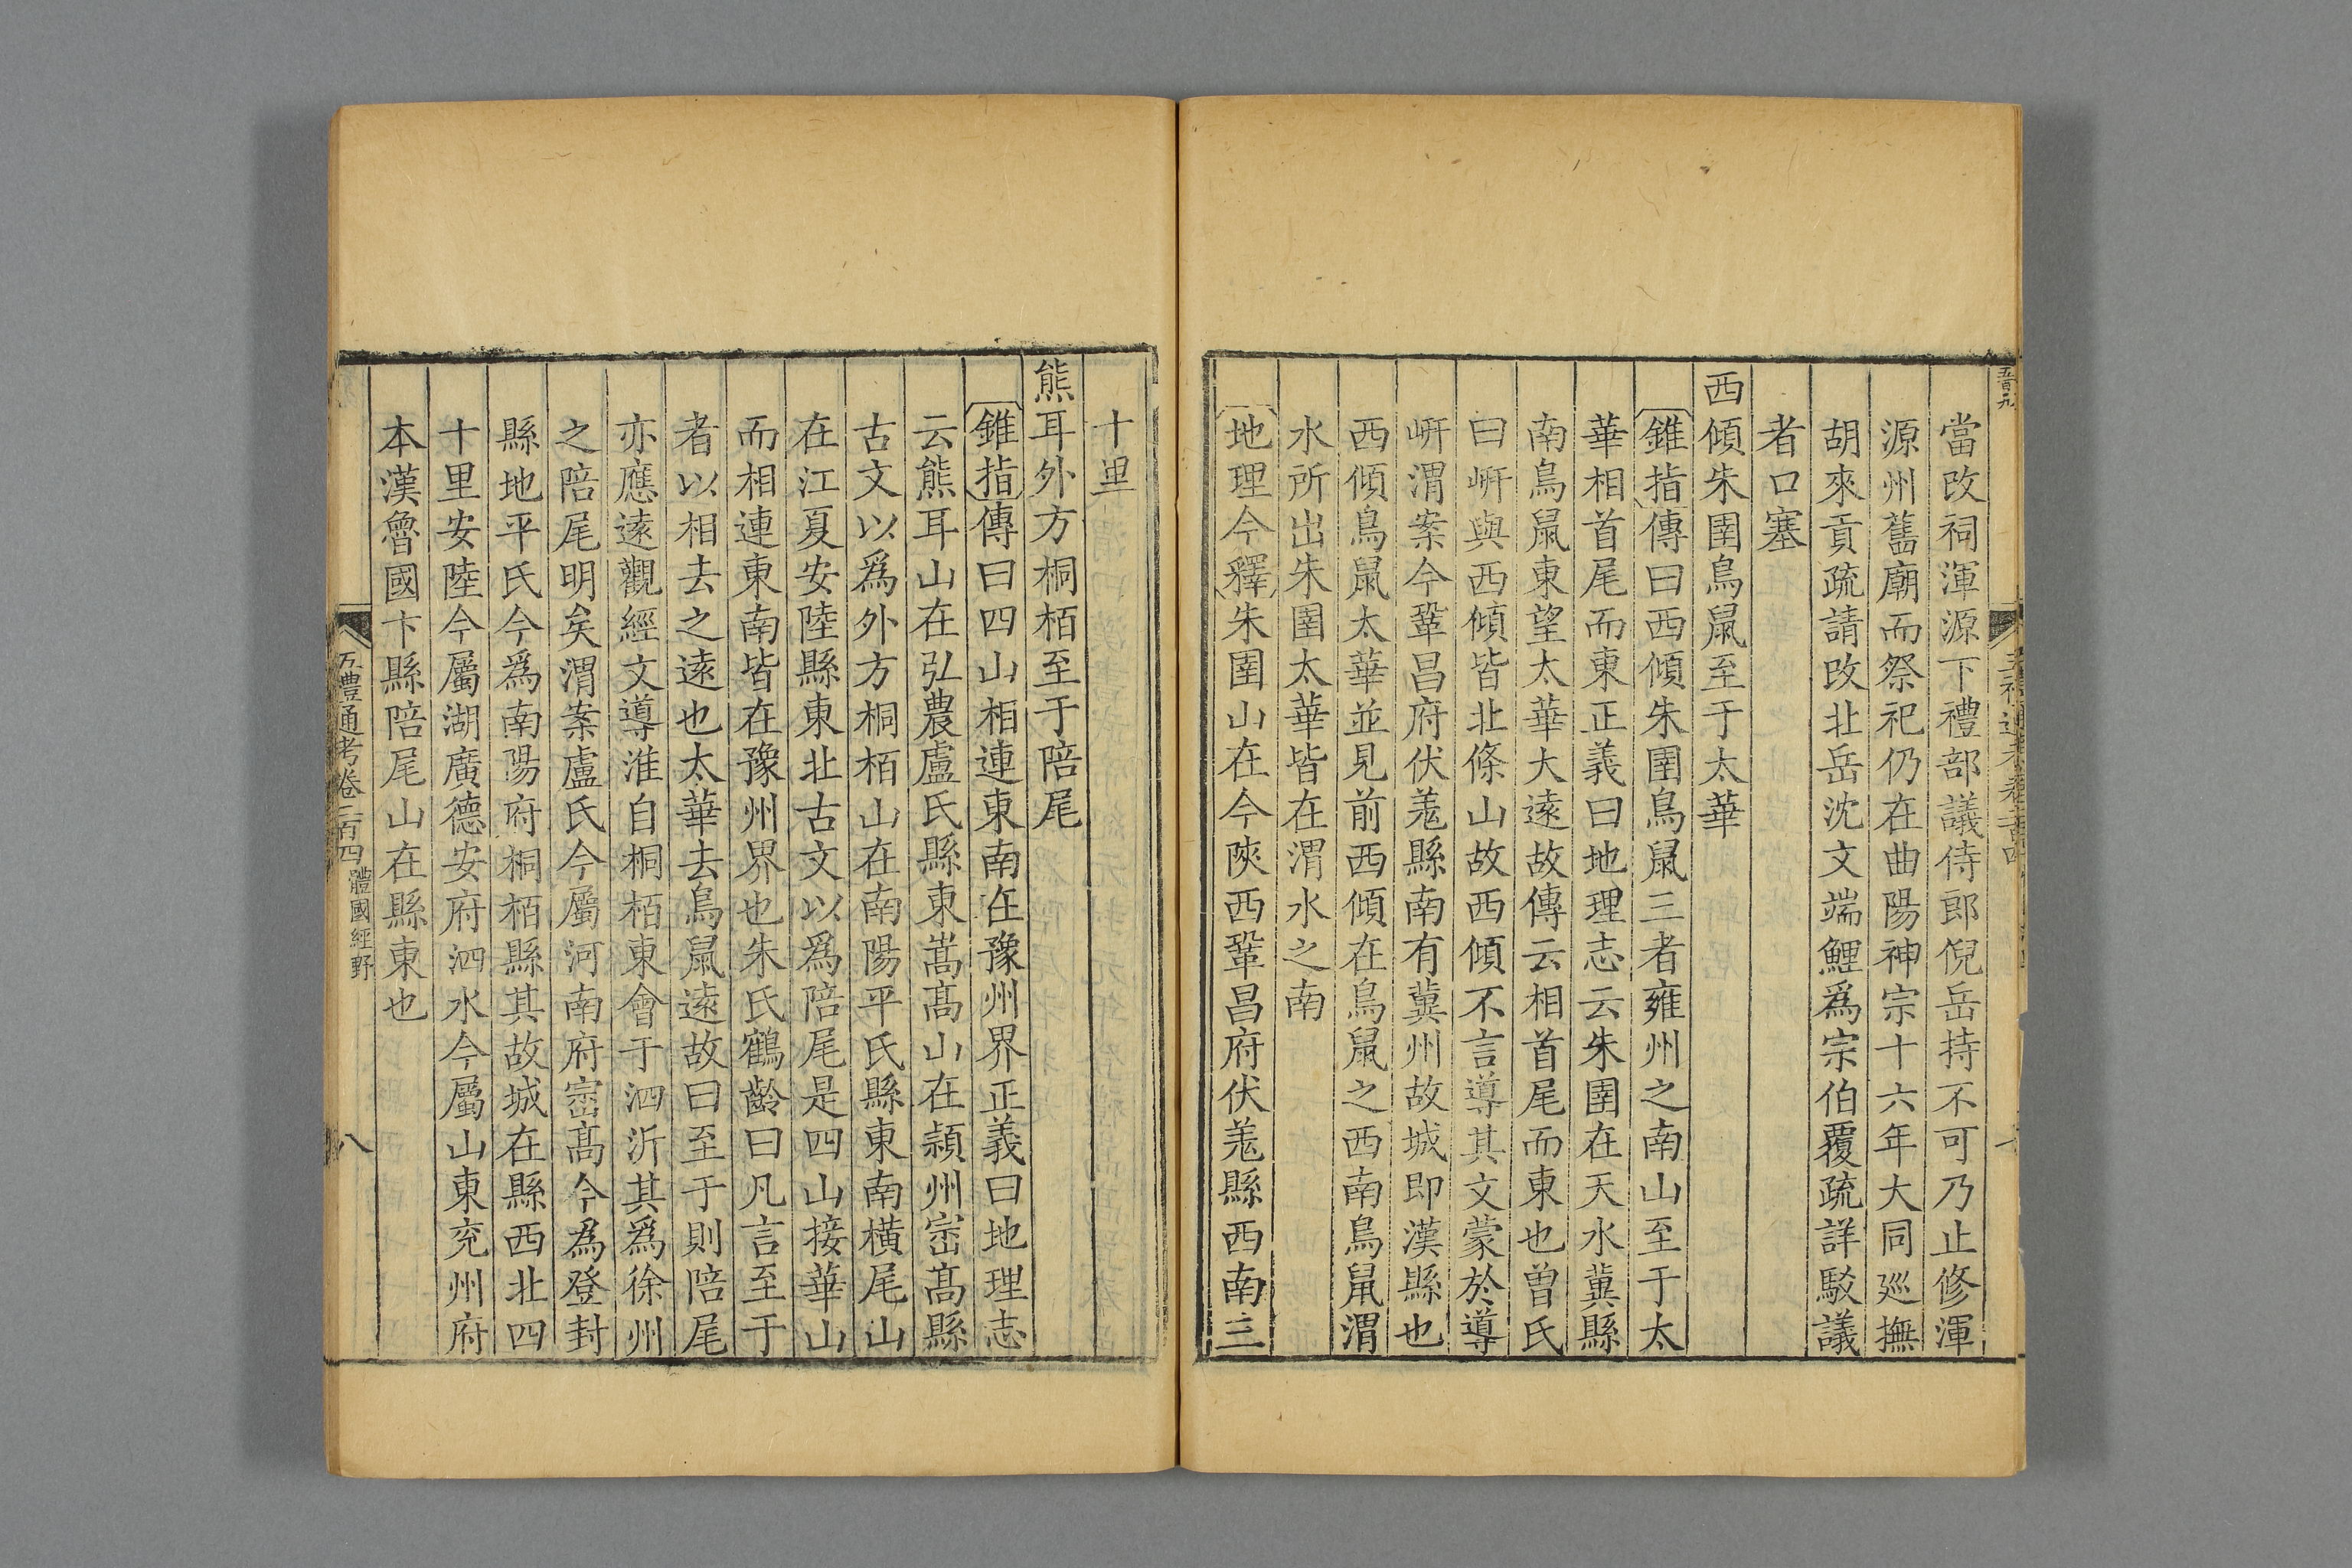 當改祠渾源下禮部議侍郎倪岳持不可乃止修渾
源州舊廟而祭祀仍在曲陽神宗十六年大同廵撫
胡來貢疏請改北岳沈文端鯉爲宗伯覆疏詳駁議
者口塞
西傾朱圉鳥鼠至于太華
錐指傳曰西傾朱圉鳥鼠三者雍州之南山至于太
華相首尾而東正義曰地理志云朱圉在天水冀縣
南鳥鼠東望太華太遠故傳云相首尾而東也曾氏
曰岍與西傾皆北條山故西傾不言導其文蒙於導
岍渭案今鞏昌府伏羗縣南有冀州故城即漢縣也
西傾鳥鼠太華並見前西傾在鳥鼠之西南鳥鼠渭
水所出朱圉太華皆在渭水之南
地理今釋朱圉山在今陝西鞏昌府伏羗縣西南三
十里
熊耳外方桐栢至于陪尾
錐指傳曰四山相連東南在豫州界正義曰地理志
云熊耳山在弘農盧氏縣東嵩高山在潁州崈高縣
古文以爲外方桐栢山在南陽平氏縣東南橫尾山
在江夏安陸縣東北古文以爲陪尾是四山接華山
而相連東南皆在豫州界也朱氏鶴齡曰凡言至于
者以相去之遠也太華去鳥鼠遠故曰至于則陪尾
亦應遠觀經文導淮自桐栢東會于泗沂其爲徐州
之陪尾明矣渭案盧氏今屬河南府崈高今為登封
縣地平氏今爲南陽府桐栢縣其故城在縣西北四
十里安陸今屬湖廣德安府泗水今屬山東兖州府
本漢魯國卞縣陪尾山在縣東也
五禮通考卷二百四 體國經野 八